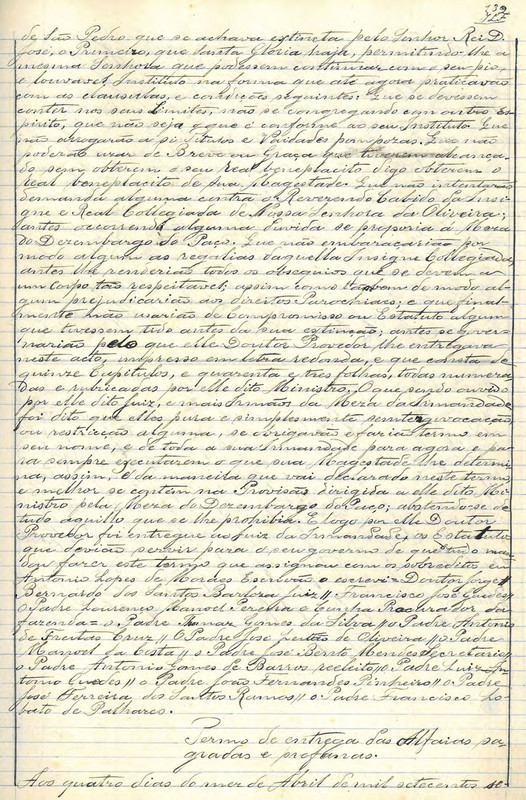 139
de São Pedro que se achava extincta pelo Senhor Rei D.
José, o Primeiro, que Santa Gloria haja, permittindo-lhe a
mesma Senhora que podessem continuar com o seu pio,
e louvavel Instituto na forma que até agora praticavão
com as clausulas, e condições seguintes: Que se devessem
conter nos seus Limites, não se congregando com outro Es-
pirito, que não seja o que é conforme ao seu Instituto. Que
não arrogarão a si titulos e Vaidades pomposas. Que não
poderão usar de Breve ou Graça que tiverem alcança-
do sem obterem o seu real beneplacito digo obterem o
Real beneplacito de Sua Magestade. Que não intentarão
demanda alguma contra o Reverendo Cabido da Insi-
gne e Real Collegiada de Nossa Senhora da Oliveira;
antes occorrendo alguma duvida se proporia á Meza
do Dezembargo do Paço. Que não embaraçarião por
modo algum as regalias daquella Insigne Collegiada,
antes lhe renderião todos os obsequios que se devem a
um Corpo tão respeitavel; assim como tambem de modo al-
gum prejudicarião aos direitos Parochiaes; e que final-
mente não usarião de Compromisso ou Estatuto algum
que tivessem tido antes da sua extinção; antes se gover-
narião pelo que elle Doutor Provedor lhe entregava
neste acto, impresso em letra redonda, e que consta de
quinze Capitulos, e quarenta e tres folhas, todas numera-
das e rubricadas por elle dito Ministro. O que sendo ouvido
por elle dito Juiz, e mais Irmãos da Meza da Irmandade
foi dito que elles pura e simplesmente sem revocação
ou restricção alguma, se obrigavão e faria termo em
seu nome, e de toda a sua Irmandade para agora e pa-
ra sempre executarem o que sua Magestade lhe determi-
na, assim, e da maneira que vai declarado neste termo,
e melhor se contém na Provisão dirigida a elle dito Mi-
nistro pela Meza do Dezembargo do Paço; abstendo-se de
tudo aquillo que se lhe prohibia. E logo por elle Doutor
Provedor foi entregue ao Juiz da Irmandade, os Estatutos
que devião servir para o seu governo de que tudo man-
dou fazer este termo que assignou com os sobreditos, eu
Antonio Lopes de Moraes Escrivão o escrevi. Doutor Jorge //
Bernardo dos Santos Barboza Juiz // Francisco José Guedes //
o Padre Lourenço Manoel Pereira e Cunha Procurador da
fazenda = o Padre Tomaz Gomes da Silva // o Padre Antonio
de Freitas Cruz // O Padre José Justas de Oliveira // o Padre
Manoel da Costa // o Padre José Bento Mendes Secretario //
o Padre Antonio Gomes de Barros // o Padre Luiz An-
tonio Guedes // o Padre João Fernandes Pinheiro // o Padre
José Ferreira dos Santos Ramos // o Padre Francisco Lo-
bato de Palhares.
Termo de entrega das Alfaias sa-
gradas e profanas.
Aos quatro dias do mez de Abril de mil setecentos se-